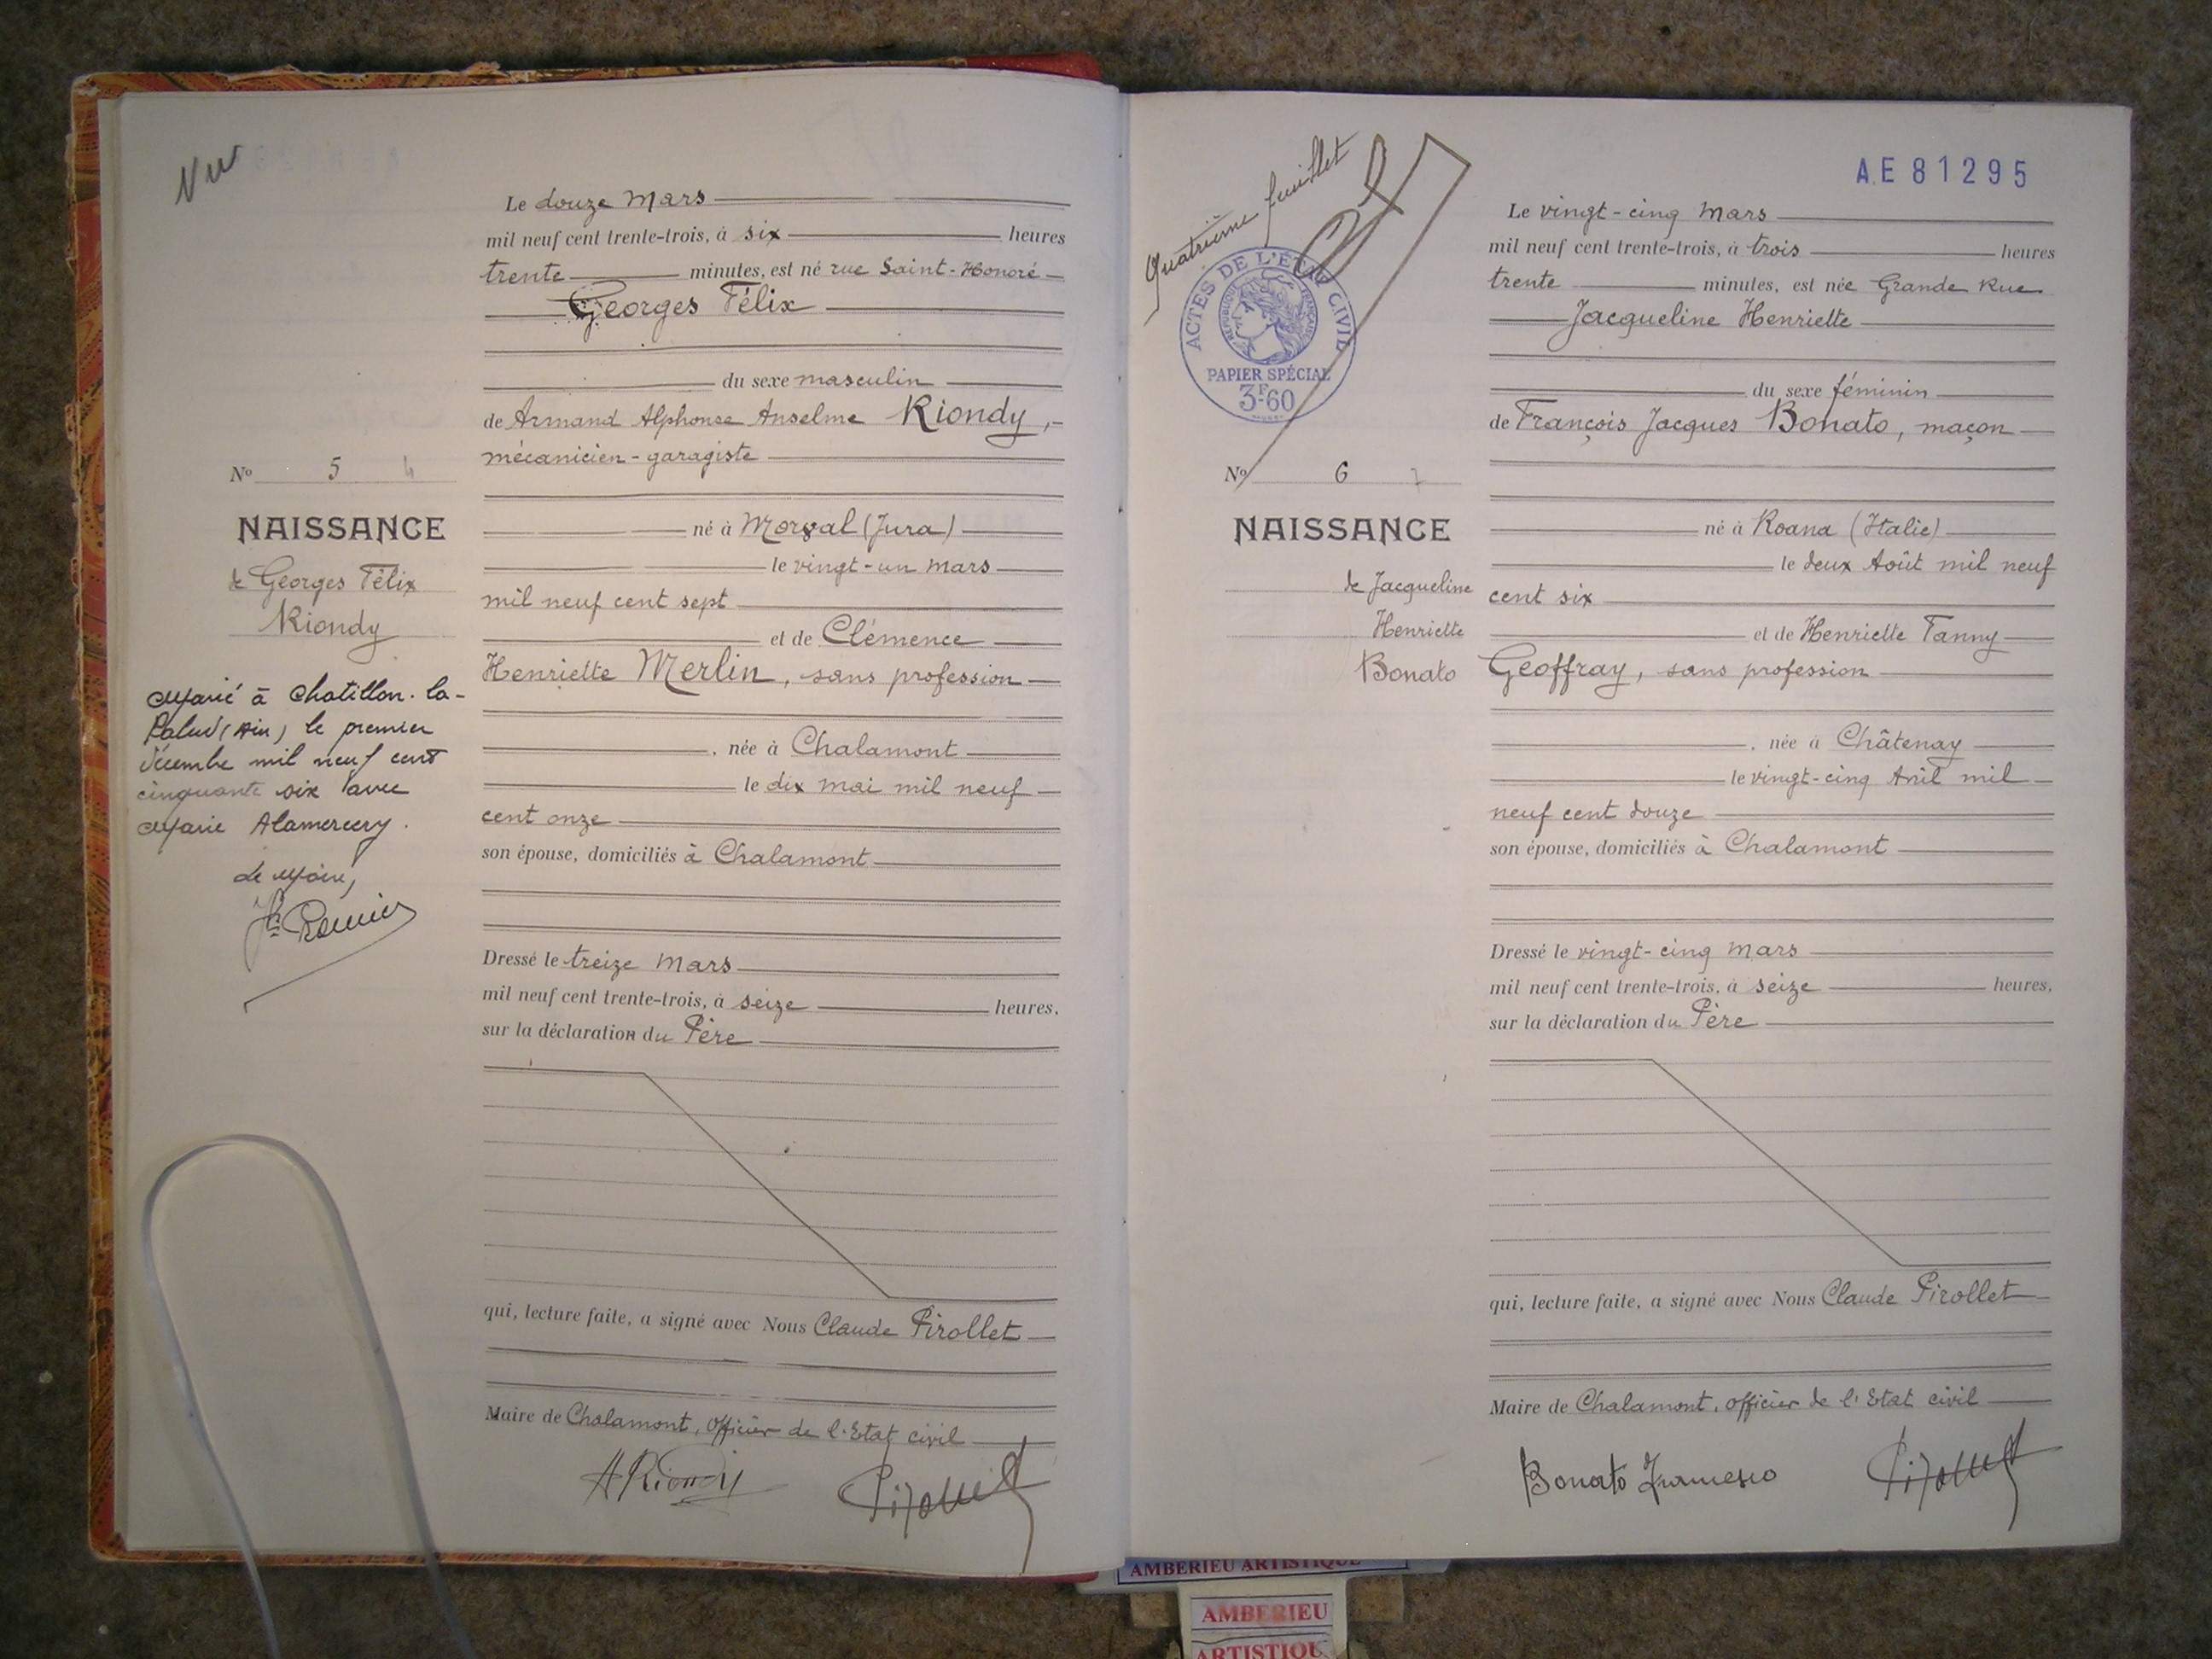 Vu
Le douze Mars
mil neuf cent trente-trois, à six heures
trente minutes, est né rue Saint-Honoré
Georges Félix
du sexe masculin
de Armand Alphonse Anselme Riondy,
mécanicien-garagiste
né à Morval (Jura)
le vingt-un mars
mil neuf cent sept
et de Clémence
Henriette Merlin, sans profession
, née à Chalamont
le dix mai mil neuf
cent onze
son épouse, domiciliés à Chalamont
Dressé le treize Mars
mil neuf cent trente-trois, à seize heures,
sur la déclaration du Père
qui, lecture faite, a signé avec Nous Claude Pirollet
Maire de Chalamont, Officier de l'Etat civil
ARiondy Pirollet
No 5 4
NAISSANCE
de Georges Félix
Riondy
Marié à Chatillon-la-
Palud (Ain) le premier
décembre mil neuf cent
cinquante six avec
Marie Alamercery.
Le Maire,
Quatrième feuillet
ACTES DE L'ETAT CIVIL
RÉPUBLIQUE FRANÇAISE
PAPIER SPÉCIAL
3F60
No 6 7
NAISSANCE
de Jacqueline
Henriette
Bonato
AE 81295
Le vingt-cinq Mars
mil neuf cent trente-trois, à trois heures
trente minutes, est née Grande Rue
Jacqueline Henriette
du sexe féminin
de François Jacques Bonato, maçon
né à Roana (Italie)
le deux Août mil neuf
cent six
et de Henriette Fanny
Geoffray, sans profession
, née à Châtenay
le vingt-cinq Avril mil
neuf cent douze
son épouse, domiciliés à Chalamont
Dressé le vingt-cinq Mars
mil neuf cent trente-trois, à seize heures,
sur la déclaration du Père
qui, lecture faite, a signé avec Nous Claude Pirollet
Maire de Chalamont, Officier de l'Etat civil
Bonato Francesco Pirollet
AMBERIEU ARTISTIQUE
AMBERIEU
ARTISTIQU